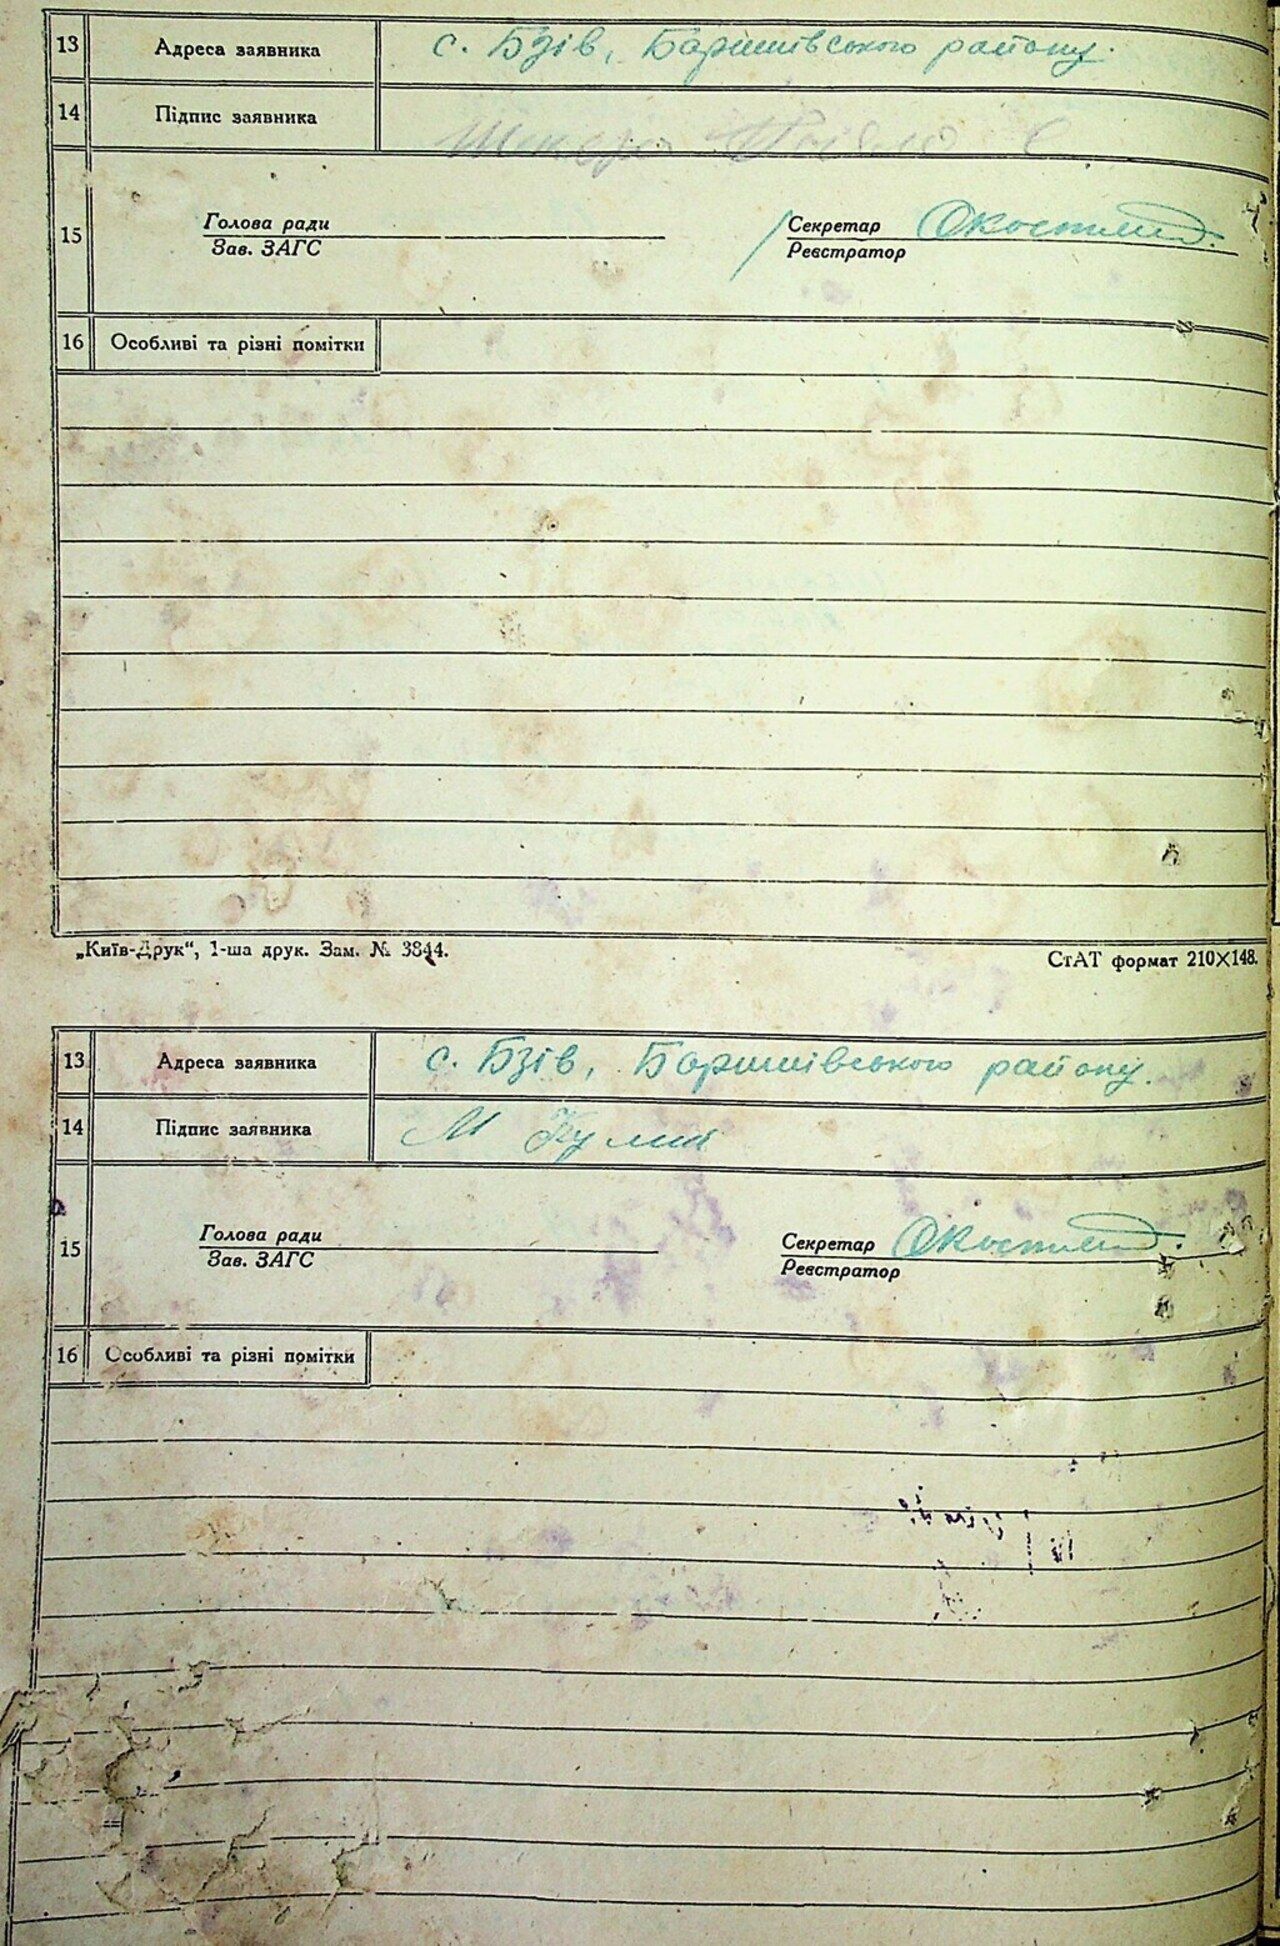 13 Адреса заявника с. Бзів, Баришівського району.
14 Підпис заявника
Голова ради Секретар
15
Зав. ЗАГС Реєстратор
16 Особливі та різні помітки
„Київ-Друк“, 1-ша друк. Зам. № 3844. СтАТ формат 210×148.
13 Адреса заявника с. Бзів, Баришівського району.
14 Підпис заявника М
Голова ради Секретар
15
Зав. ЗАГС Реєстратор
16 Особливі та різні помітки